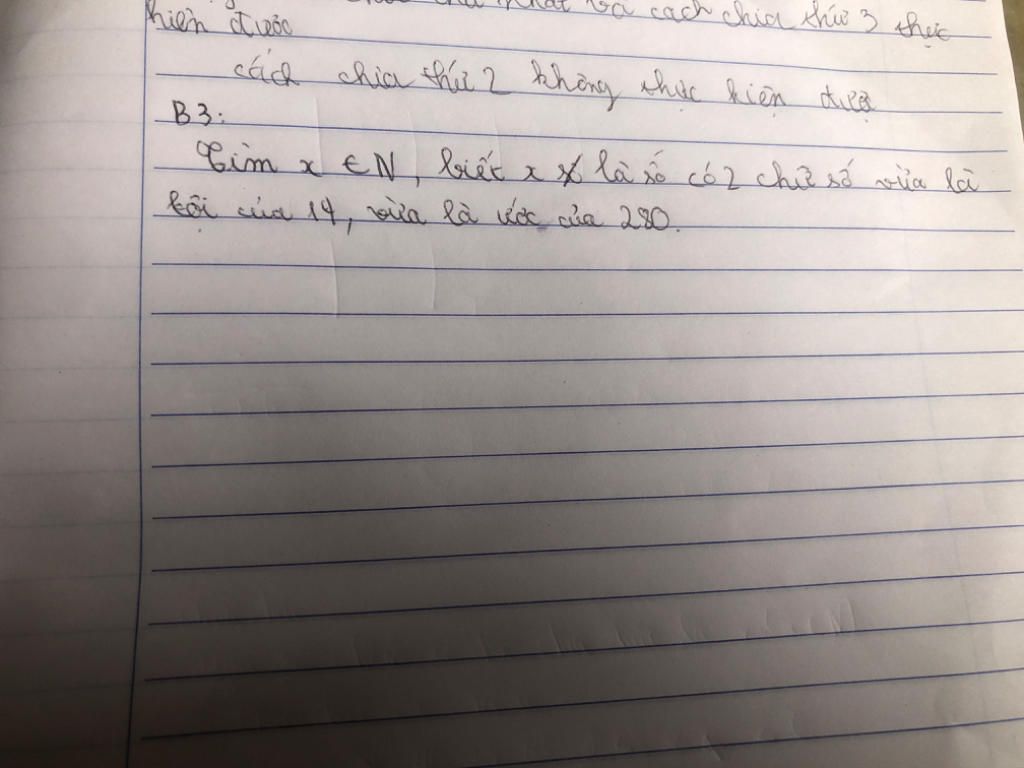 nhất và cách chia thứ 3 thực
hiện được
cách chia thứ 2 không thực hiện được
B3:
Tìm x ∈ N, biết x là số có 2 chữ số vừa là
bội của 14, vừa là ước của 280.